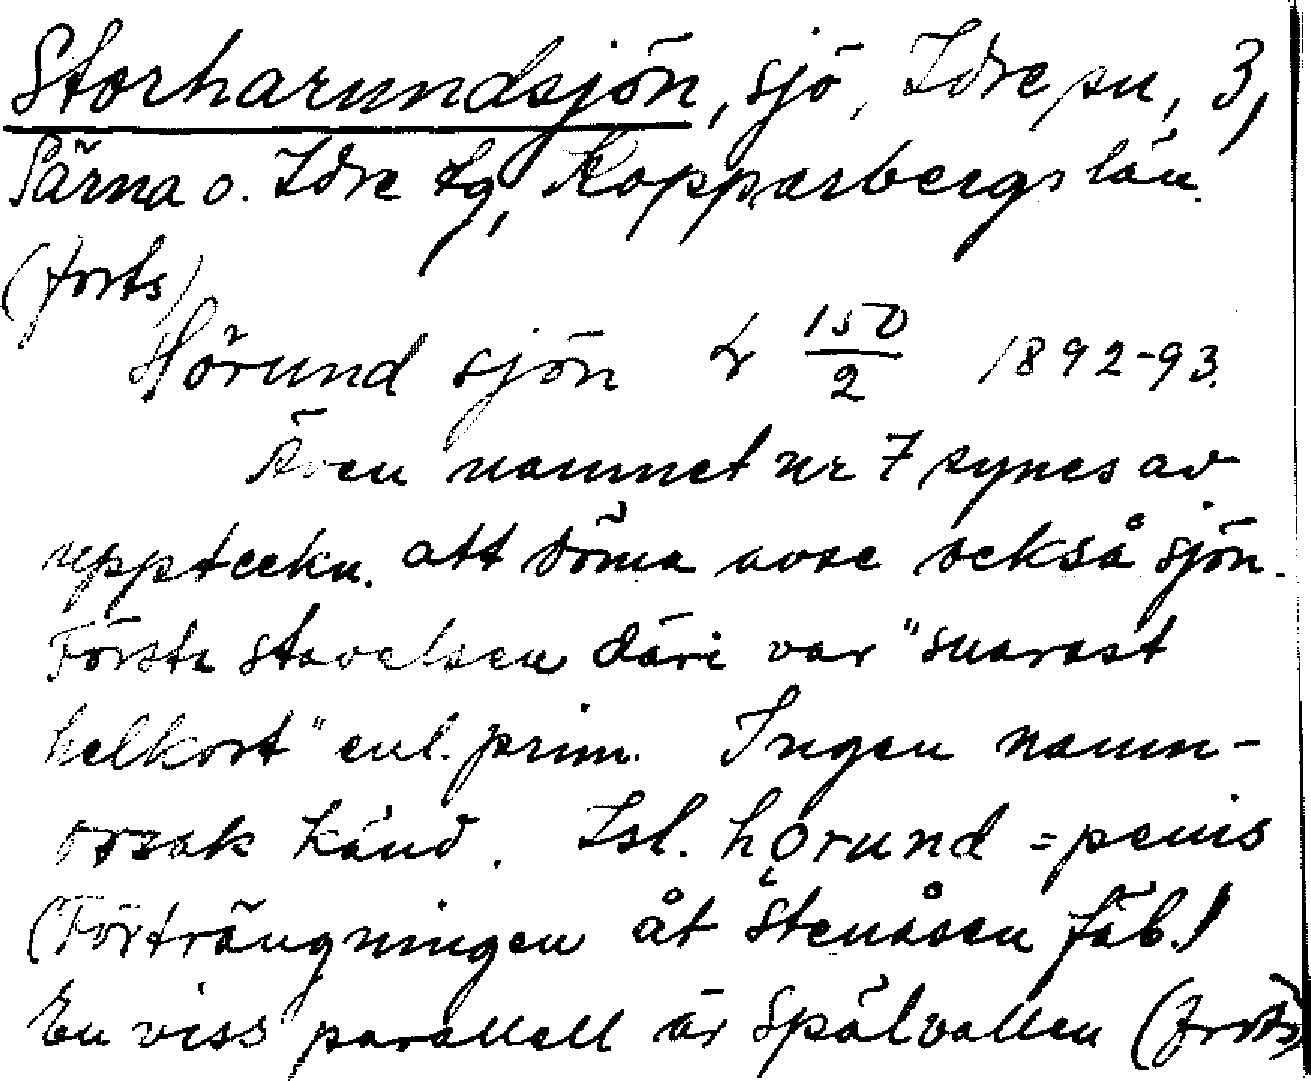 Storharundsjön, sjö, Idre sn, 3,
Särna o. Idre tg, Kopparbergs län.
(forts)
Hörund sjön Lr 150/2 1892-93.
Även namnet nr 7 synes av
uppteckn. att döma avse också sjön.
Första stavelsen däri var "snarast
helkort" enl. prim. Ingen namn-
orsak känd. Isl. hǫrund = penis
(Förträngningen åt Stenåsen fäb.)
En viss parallell är Spälvallen (forts)